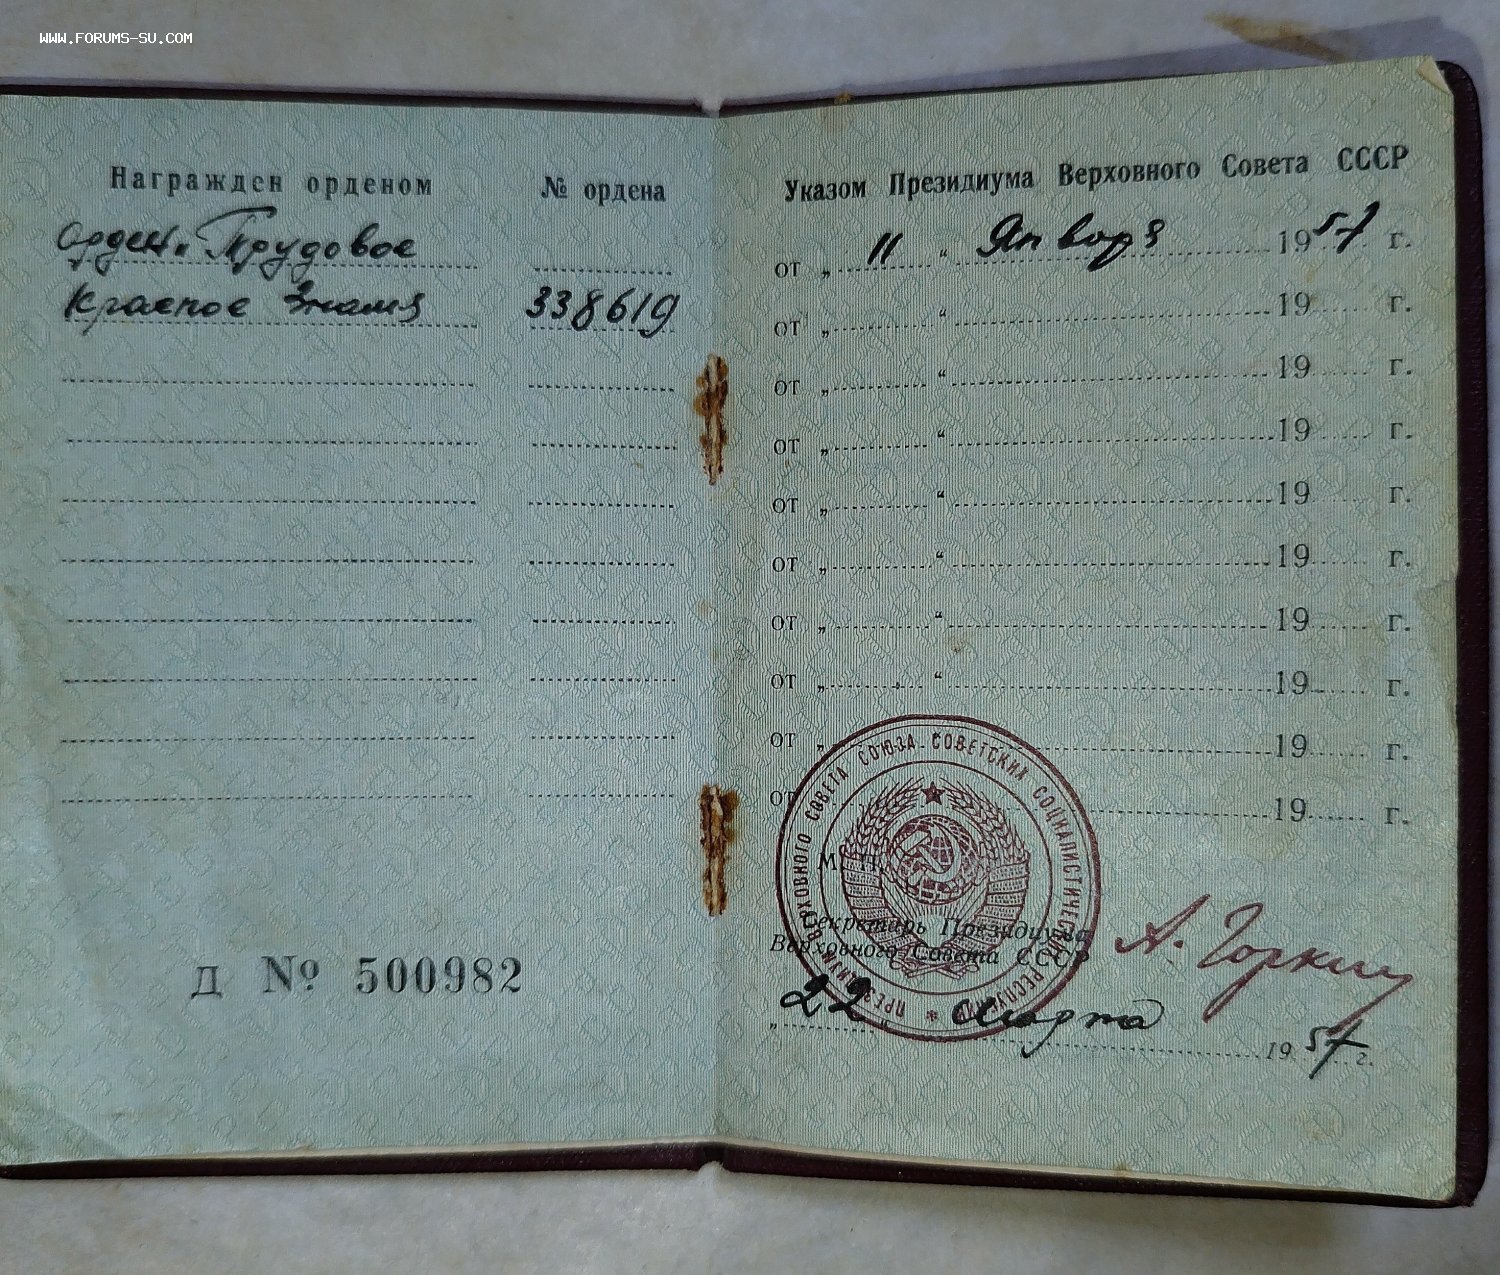 WWW.FORUMS-SU.COM
Награжден орденом № ордена
Орден „Трудовое
Красное Знамя 338619
Д № 500982
Указом Президиума Верховного Совета СССР
от „ 11 “ Января 1957 г.
от „ “ 19 г.
от „ “ 19 г.
от „ “ 19 г.
от „ “ 19 г.
от „ “ 19 г.
от „ “ 19 г.
от „ “ 19 г.
от „ 19 г.
от 19 г.
ПРЕЗИДИУМ ВЕРХОВНОГО СОВЕТА СОЮЗА СОВЕТСКИХ СОЦИАЛИСТИЧЕСКИХ РЕСПУБЛИК
М. П.
Секретарь Президиума
Верховного Совета СССР
А. Горкин
„ 22 “ Марта 1957 г.